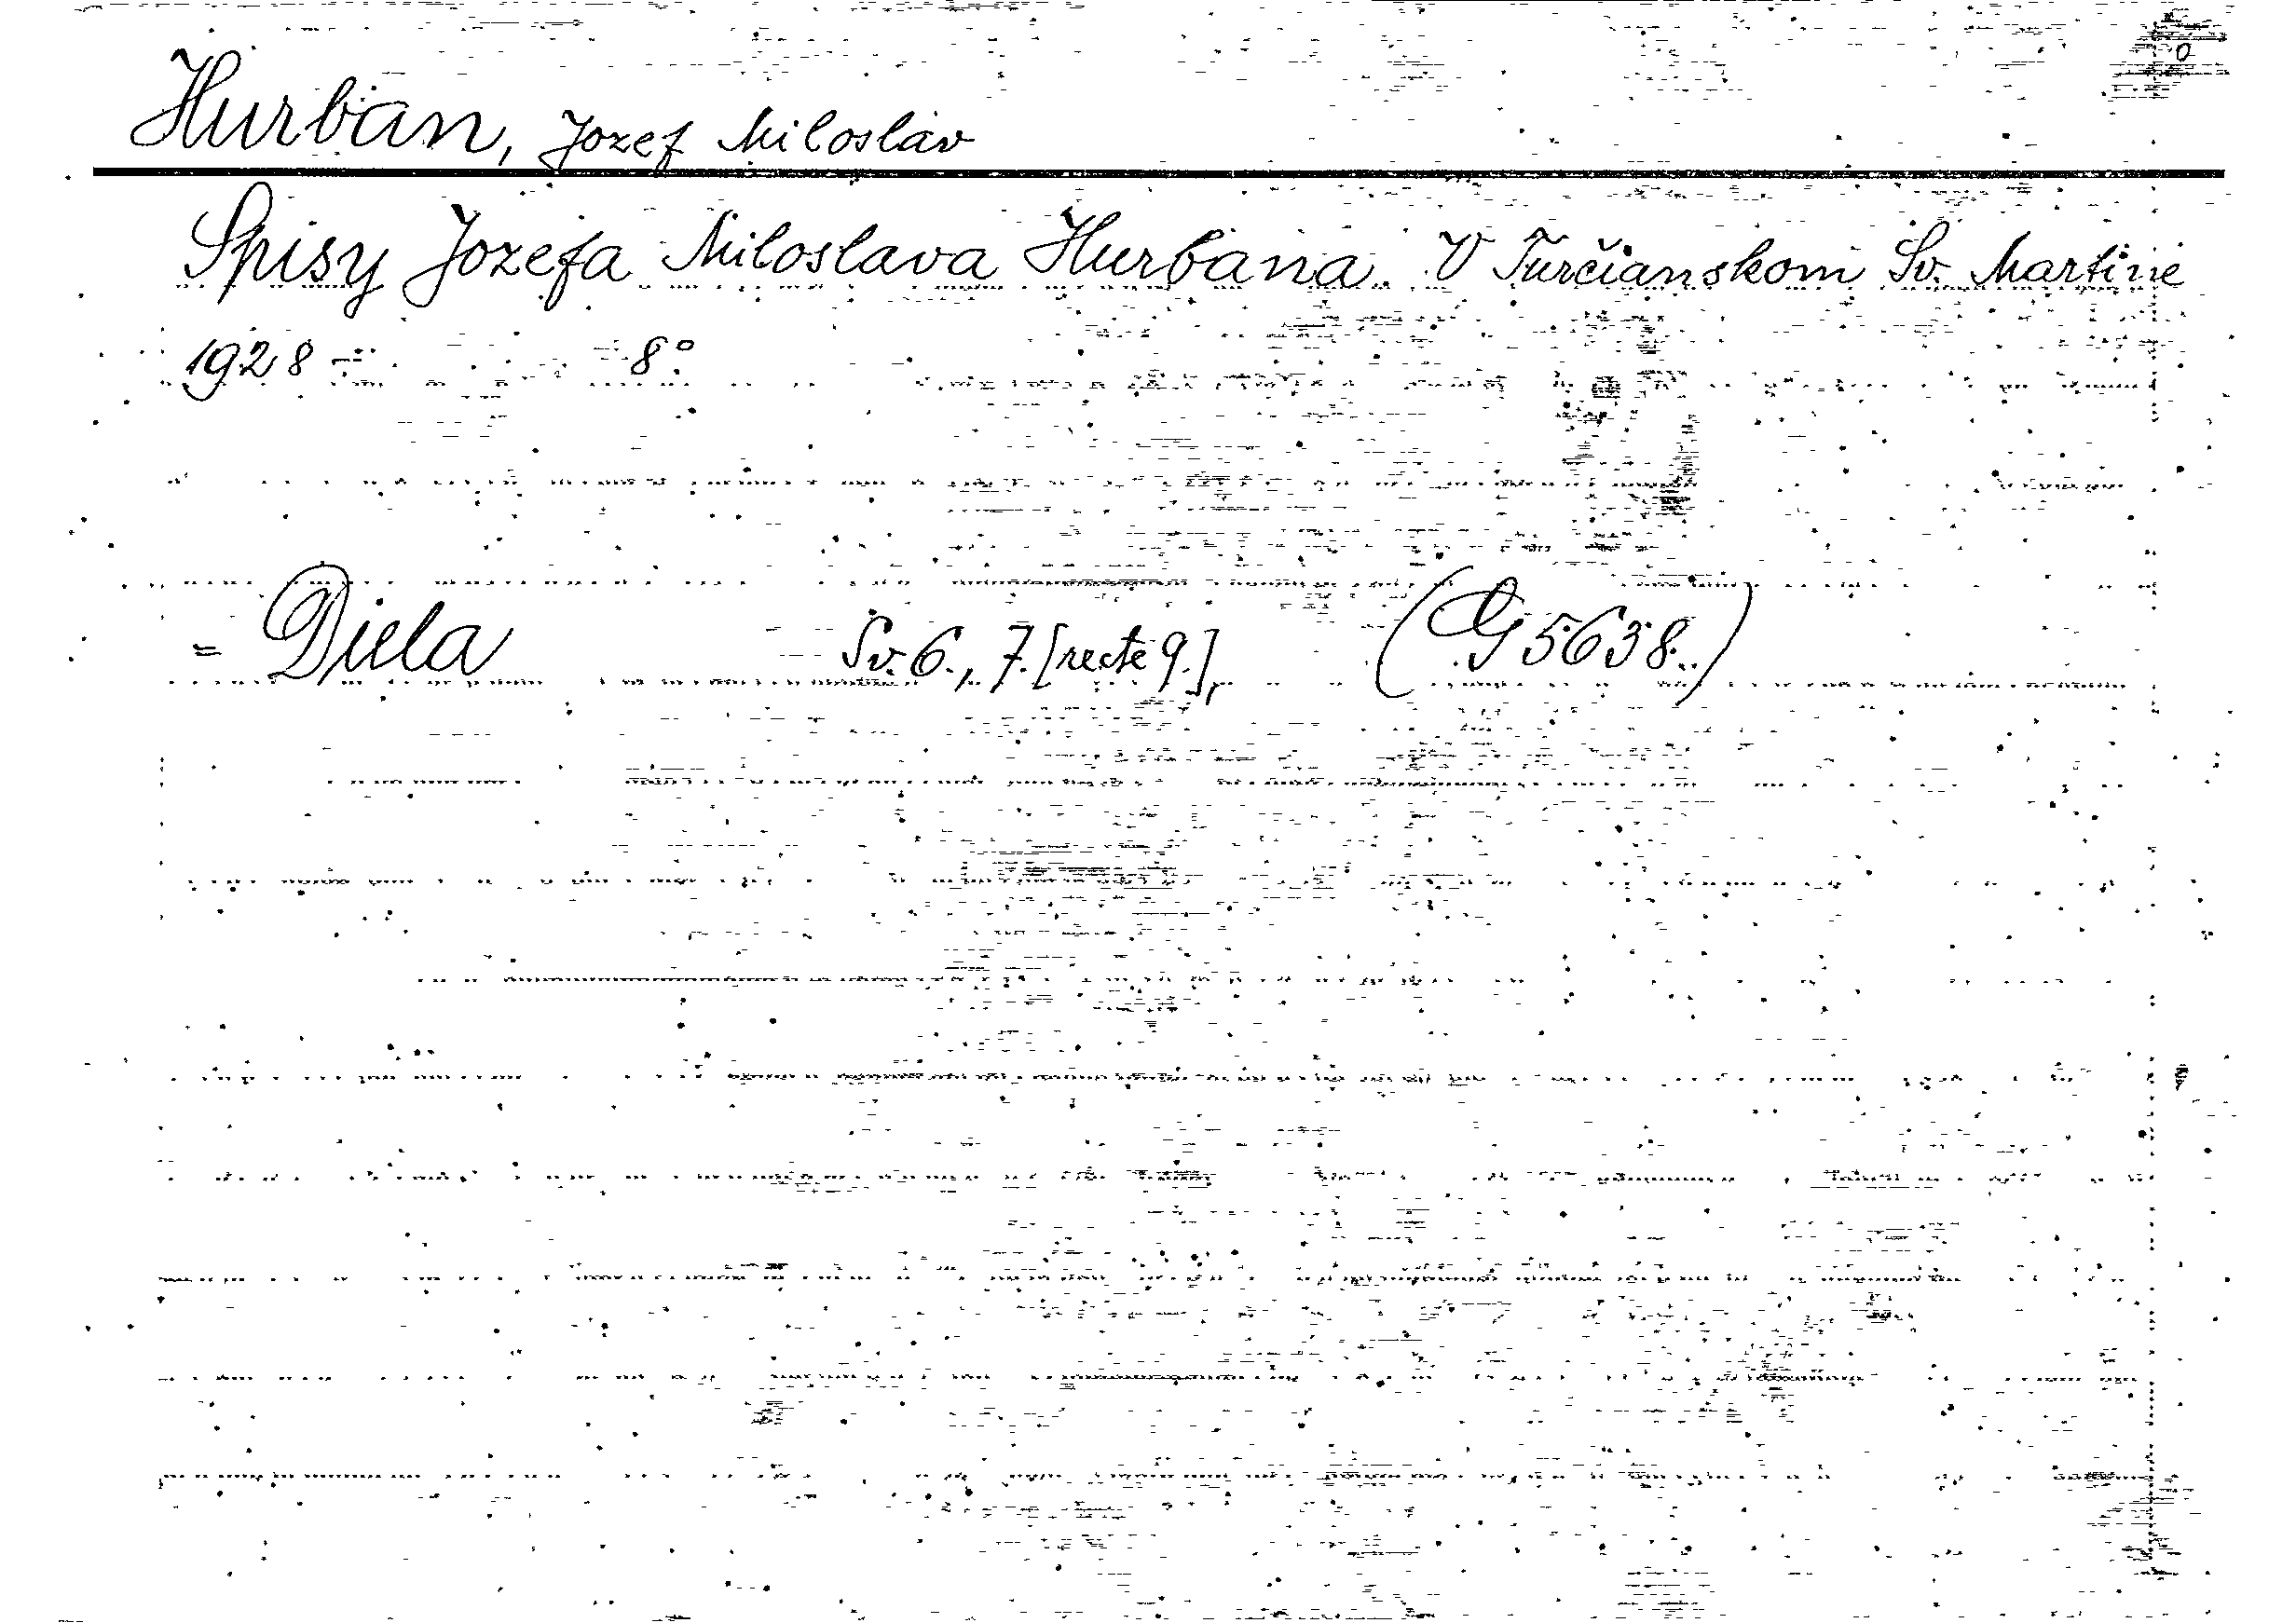 Hurban, Jozef Miloslav
Spisy Jozefa Miloslava Hurbana. V Turčianskom Sv. Martine
1928 - 8°.
= Diela Sv. 6., 7. [recte 9.], (G 5638.)